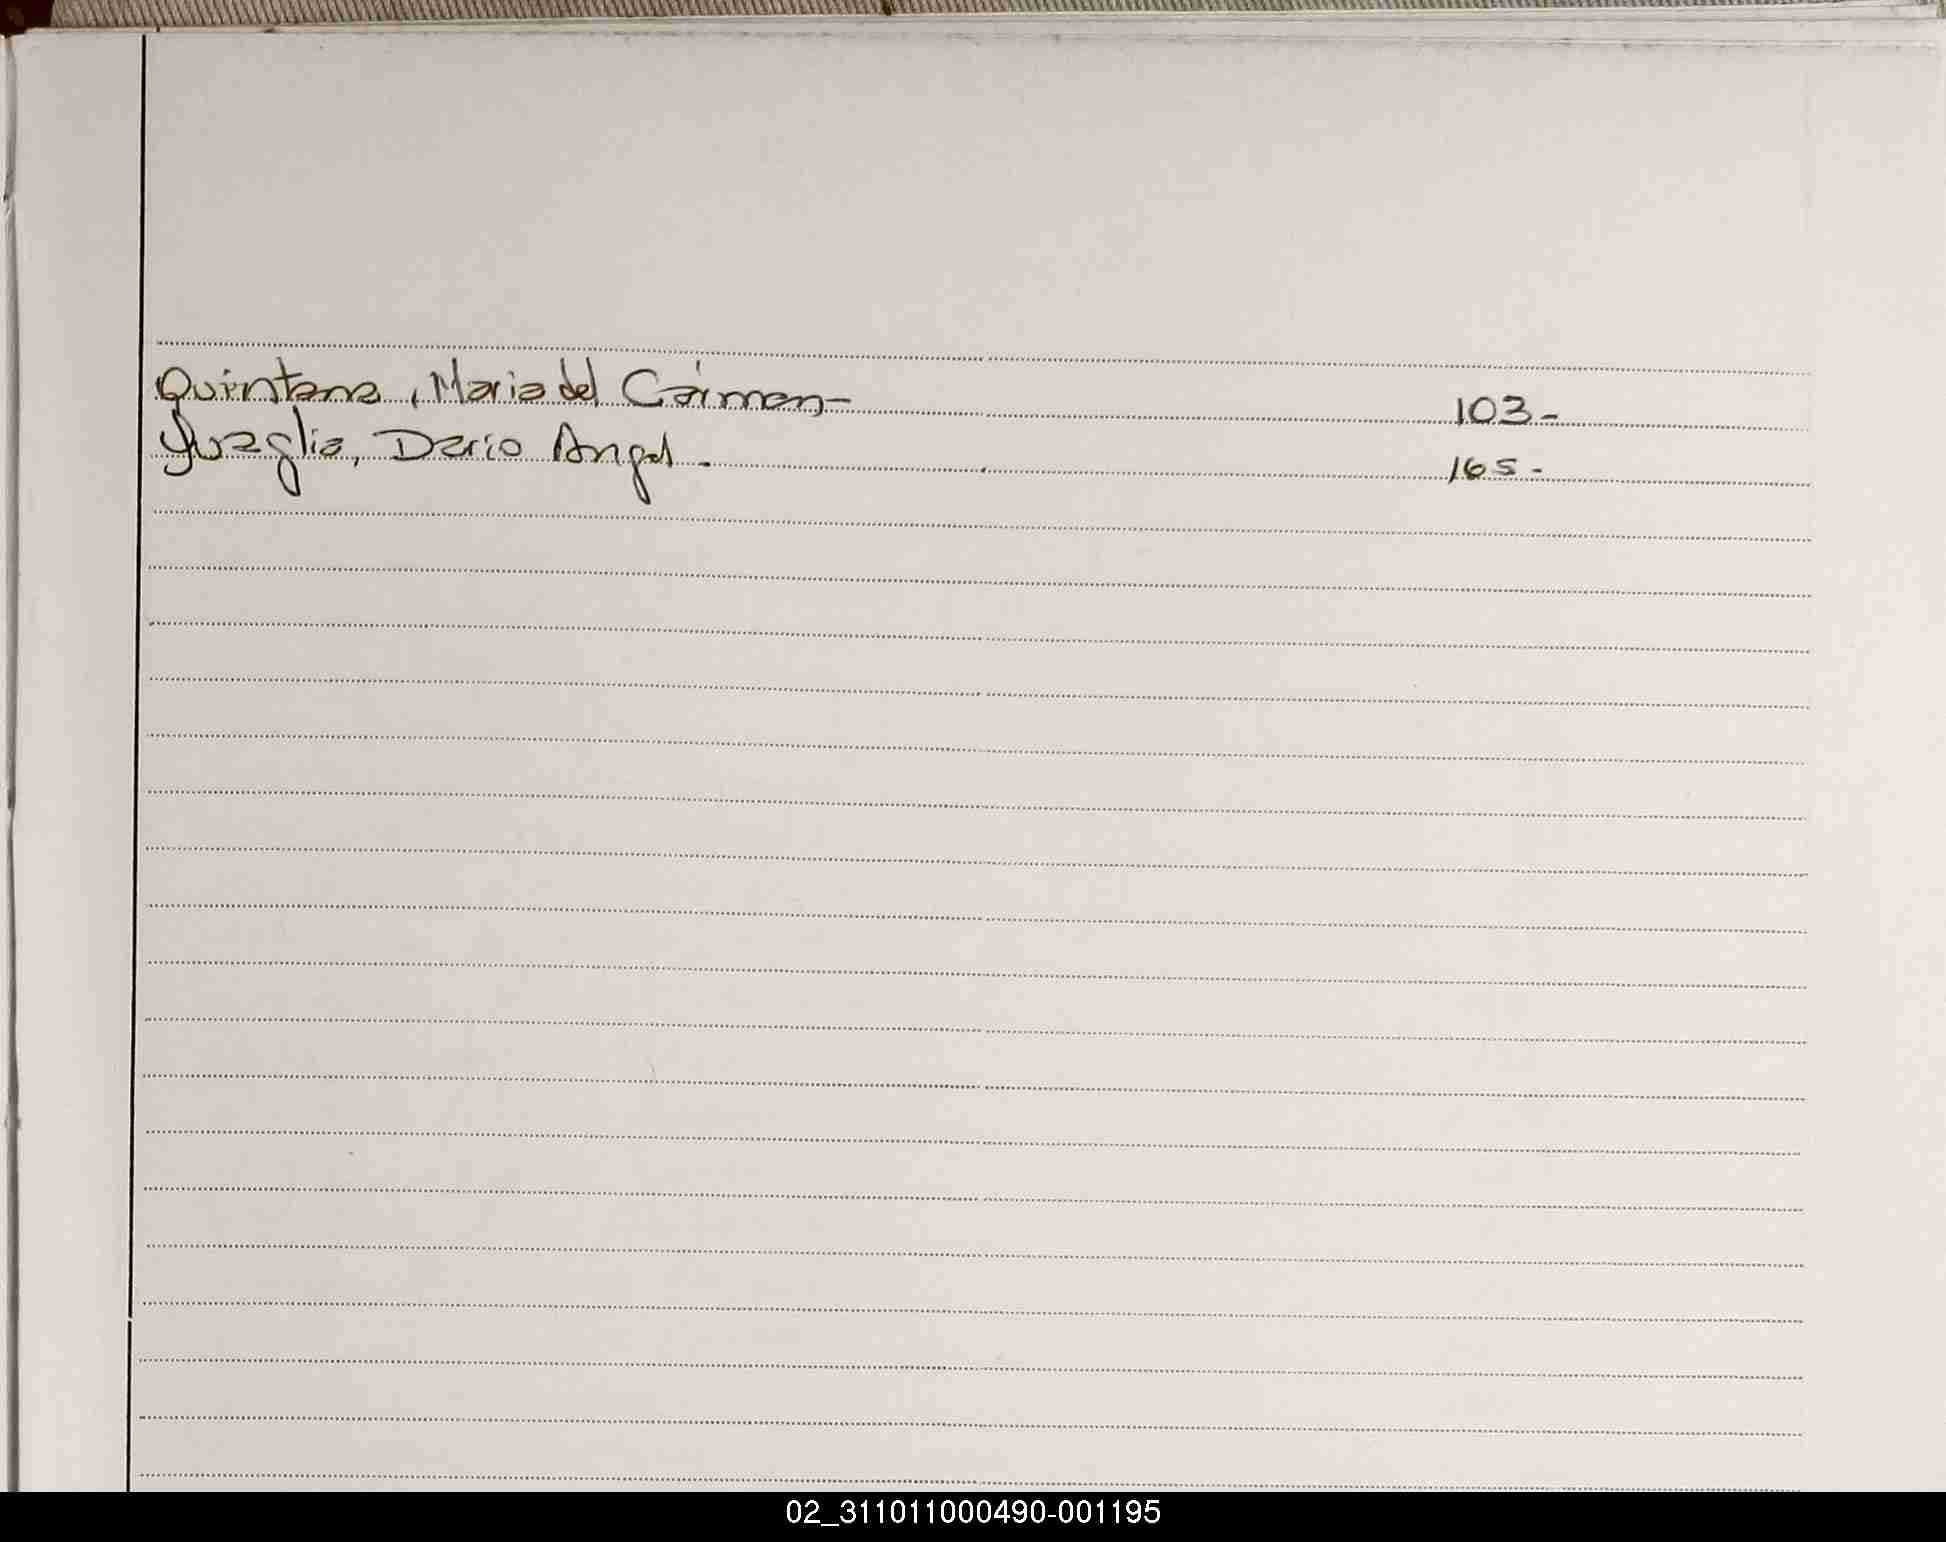 Quintana, Maria del Carmen- 103-
Quaglia, Dario Angel. 165-
02_311011000490-001195